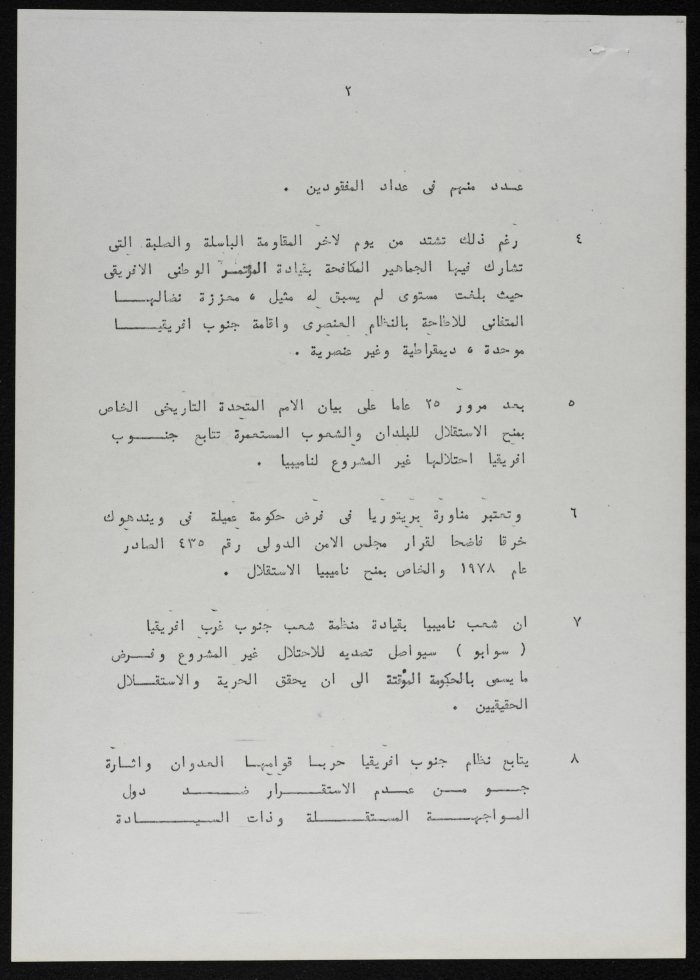 ٢
عدد منهم فى عداد المفقودين .
٤ رغم ذلك تشتد من يوم لاخر المقاومة الباسلة والصلبة التى
تشارك فيها الجماهير المكافحة بقيادة المؤتمر الوطنى الافريقى
حيث بلغت مستوى لم يسبق له مثيل ، معززة نضالهــا
المتفانى للاطاحة بالنظام العنصرى واقامة جنوب افريقيــا
موحدة ، ديمقراطية وغير عنصرية .
٥ بعد مرور ٢٥ عاما على بيان الامم المتحدة التاريخى الخاص
بمنح الاستقلال للبلدان والشعوب المستعمرة تتابع جنــوب
افريقيا احتلالها غير المشروع لناميبيا .
٦ وتعتبر مناورة بريتوريا فى فرض حكومة عميلة فى ويندهوك
خرقا فاضحا لقرار مجلس الامن الدولى رقم ٤٣٥ الصادر
عام ١٩٧٨ والخاص بمنح ناميبيا الاستقلال .
٧ ان شعب ناميبيا بقيادة منظمة شعب جنوب غرب افريقيا
( سوابو ) سيواصل تصديه للاحتلال غير المشروع وفــرض
مايسمى بالحكومة المؤقتة الى ان يحقق الحرية والاستقــلال
الحقيقيين .
٨ يتابع نظام جنوب افريقيا حربــا قوامهــا العدوان واثــارة
جــو مــن عــدم الاستقــرار ضــد دول
المواجهــة المستقــلة وذات السيــادة